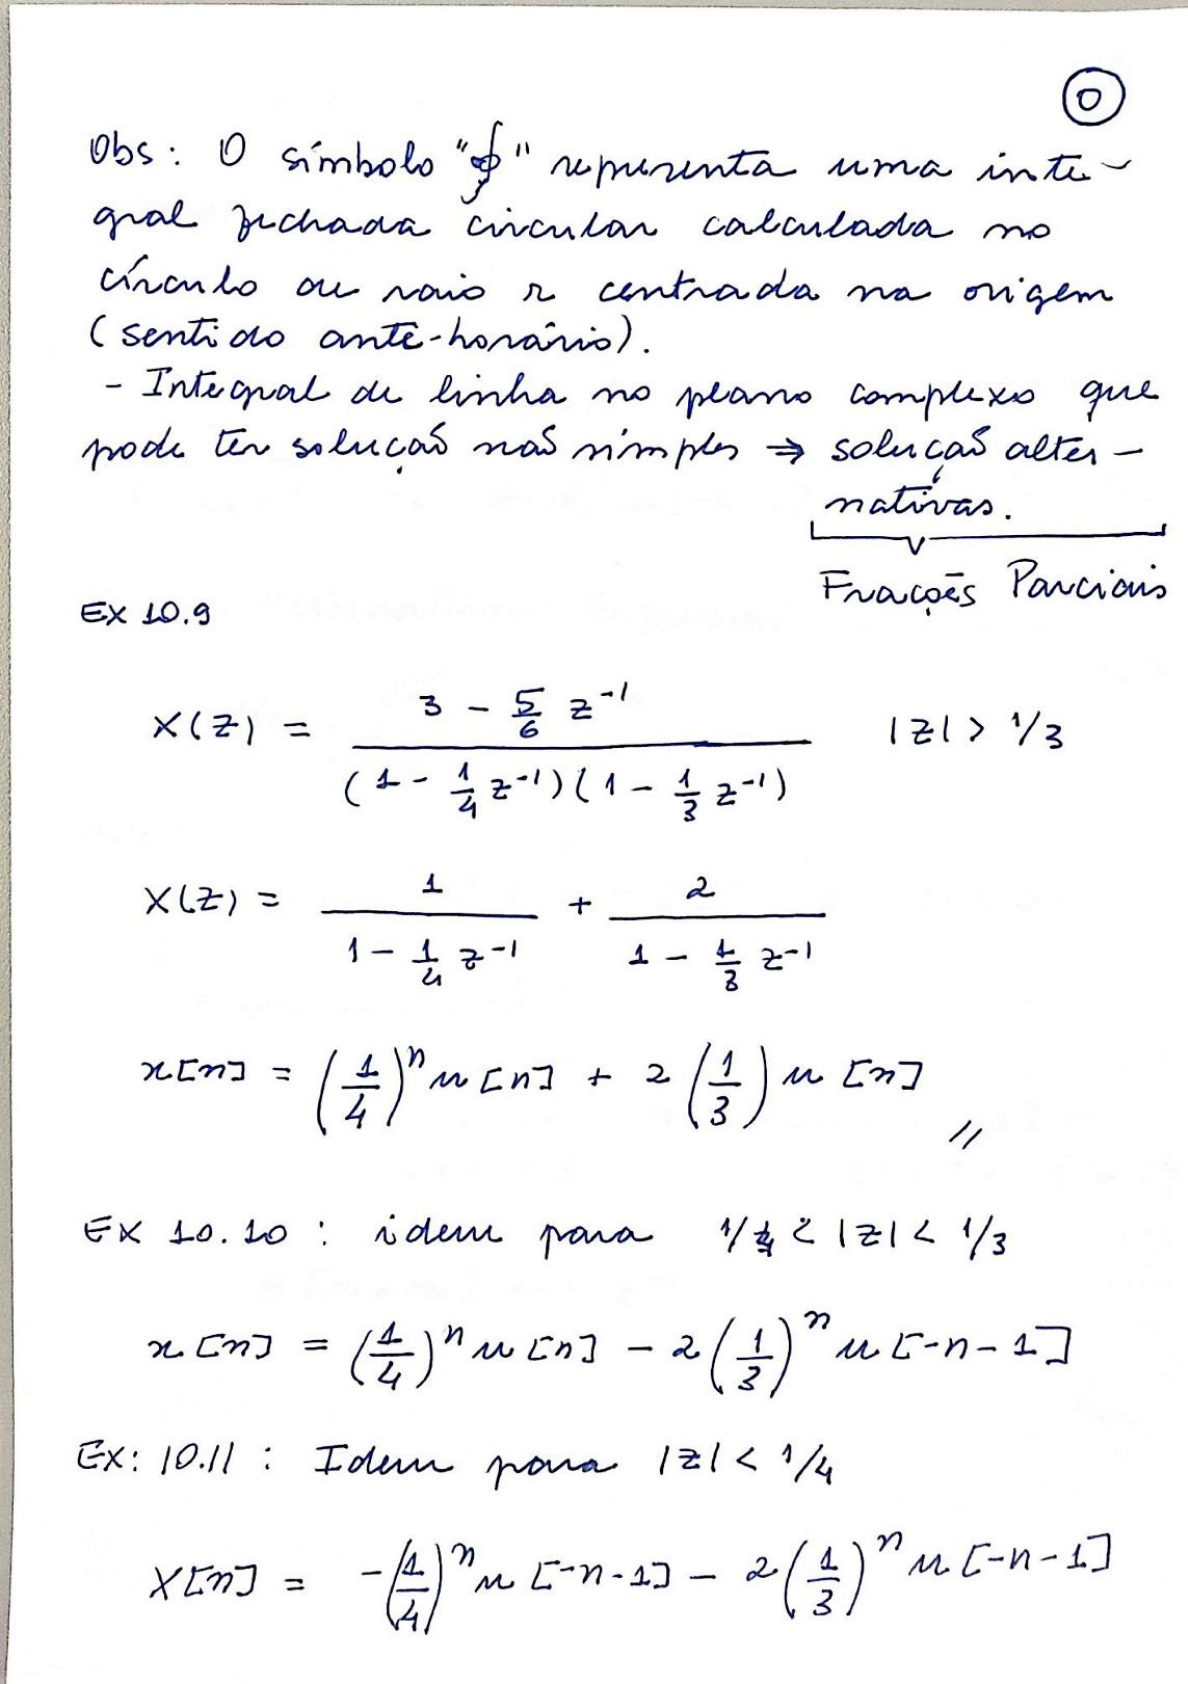 0
Obs: O símbolo "∮" representa uma inte-
gral fechada circular calculada no
círculo de raio r centrada na origem
(sentido anti-horário).
- Integral de linha no plano complexo que
pode ter solução não simples ⇒ solução alter-
nativas.
Frações Parciais
Ex 10.9
X(z) = (3 - 5/6 z^-1) / ((1 - 1/4 z^-1)(1 - 1/3 z^-1))   |z| > 1/3
X(z) = 1 / (1 - 1/4 z^-1) + 2 / (1 - 1/3 z^-1)
x[n] = (1/4)^n u[n] + 2 (1/3) u[n] //
Ex 10.10 : idem para 1/4 < |z| < 1/3
x[n] = (1/4)^n u[n] - 2 (1/3)^n u[-n-1]
Ex: 10.11 : Idem para |z| < 1/4
X[n] = -(1/4)^n u[-n-1] - 2 (1/3)^n u[-n-1]